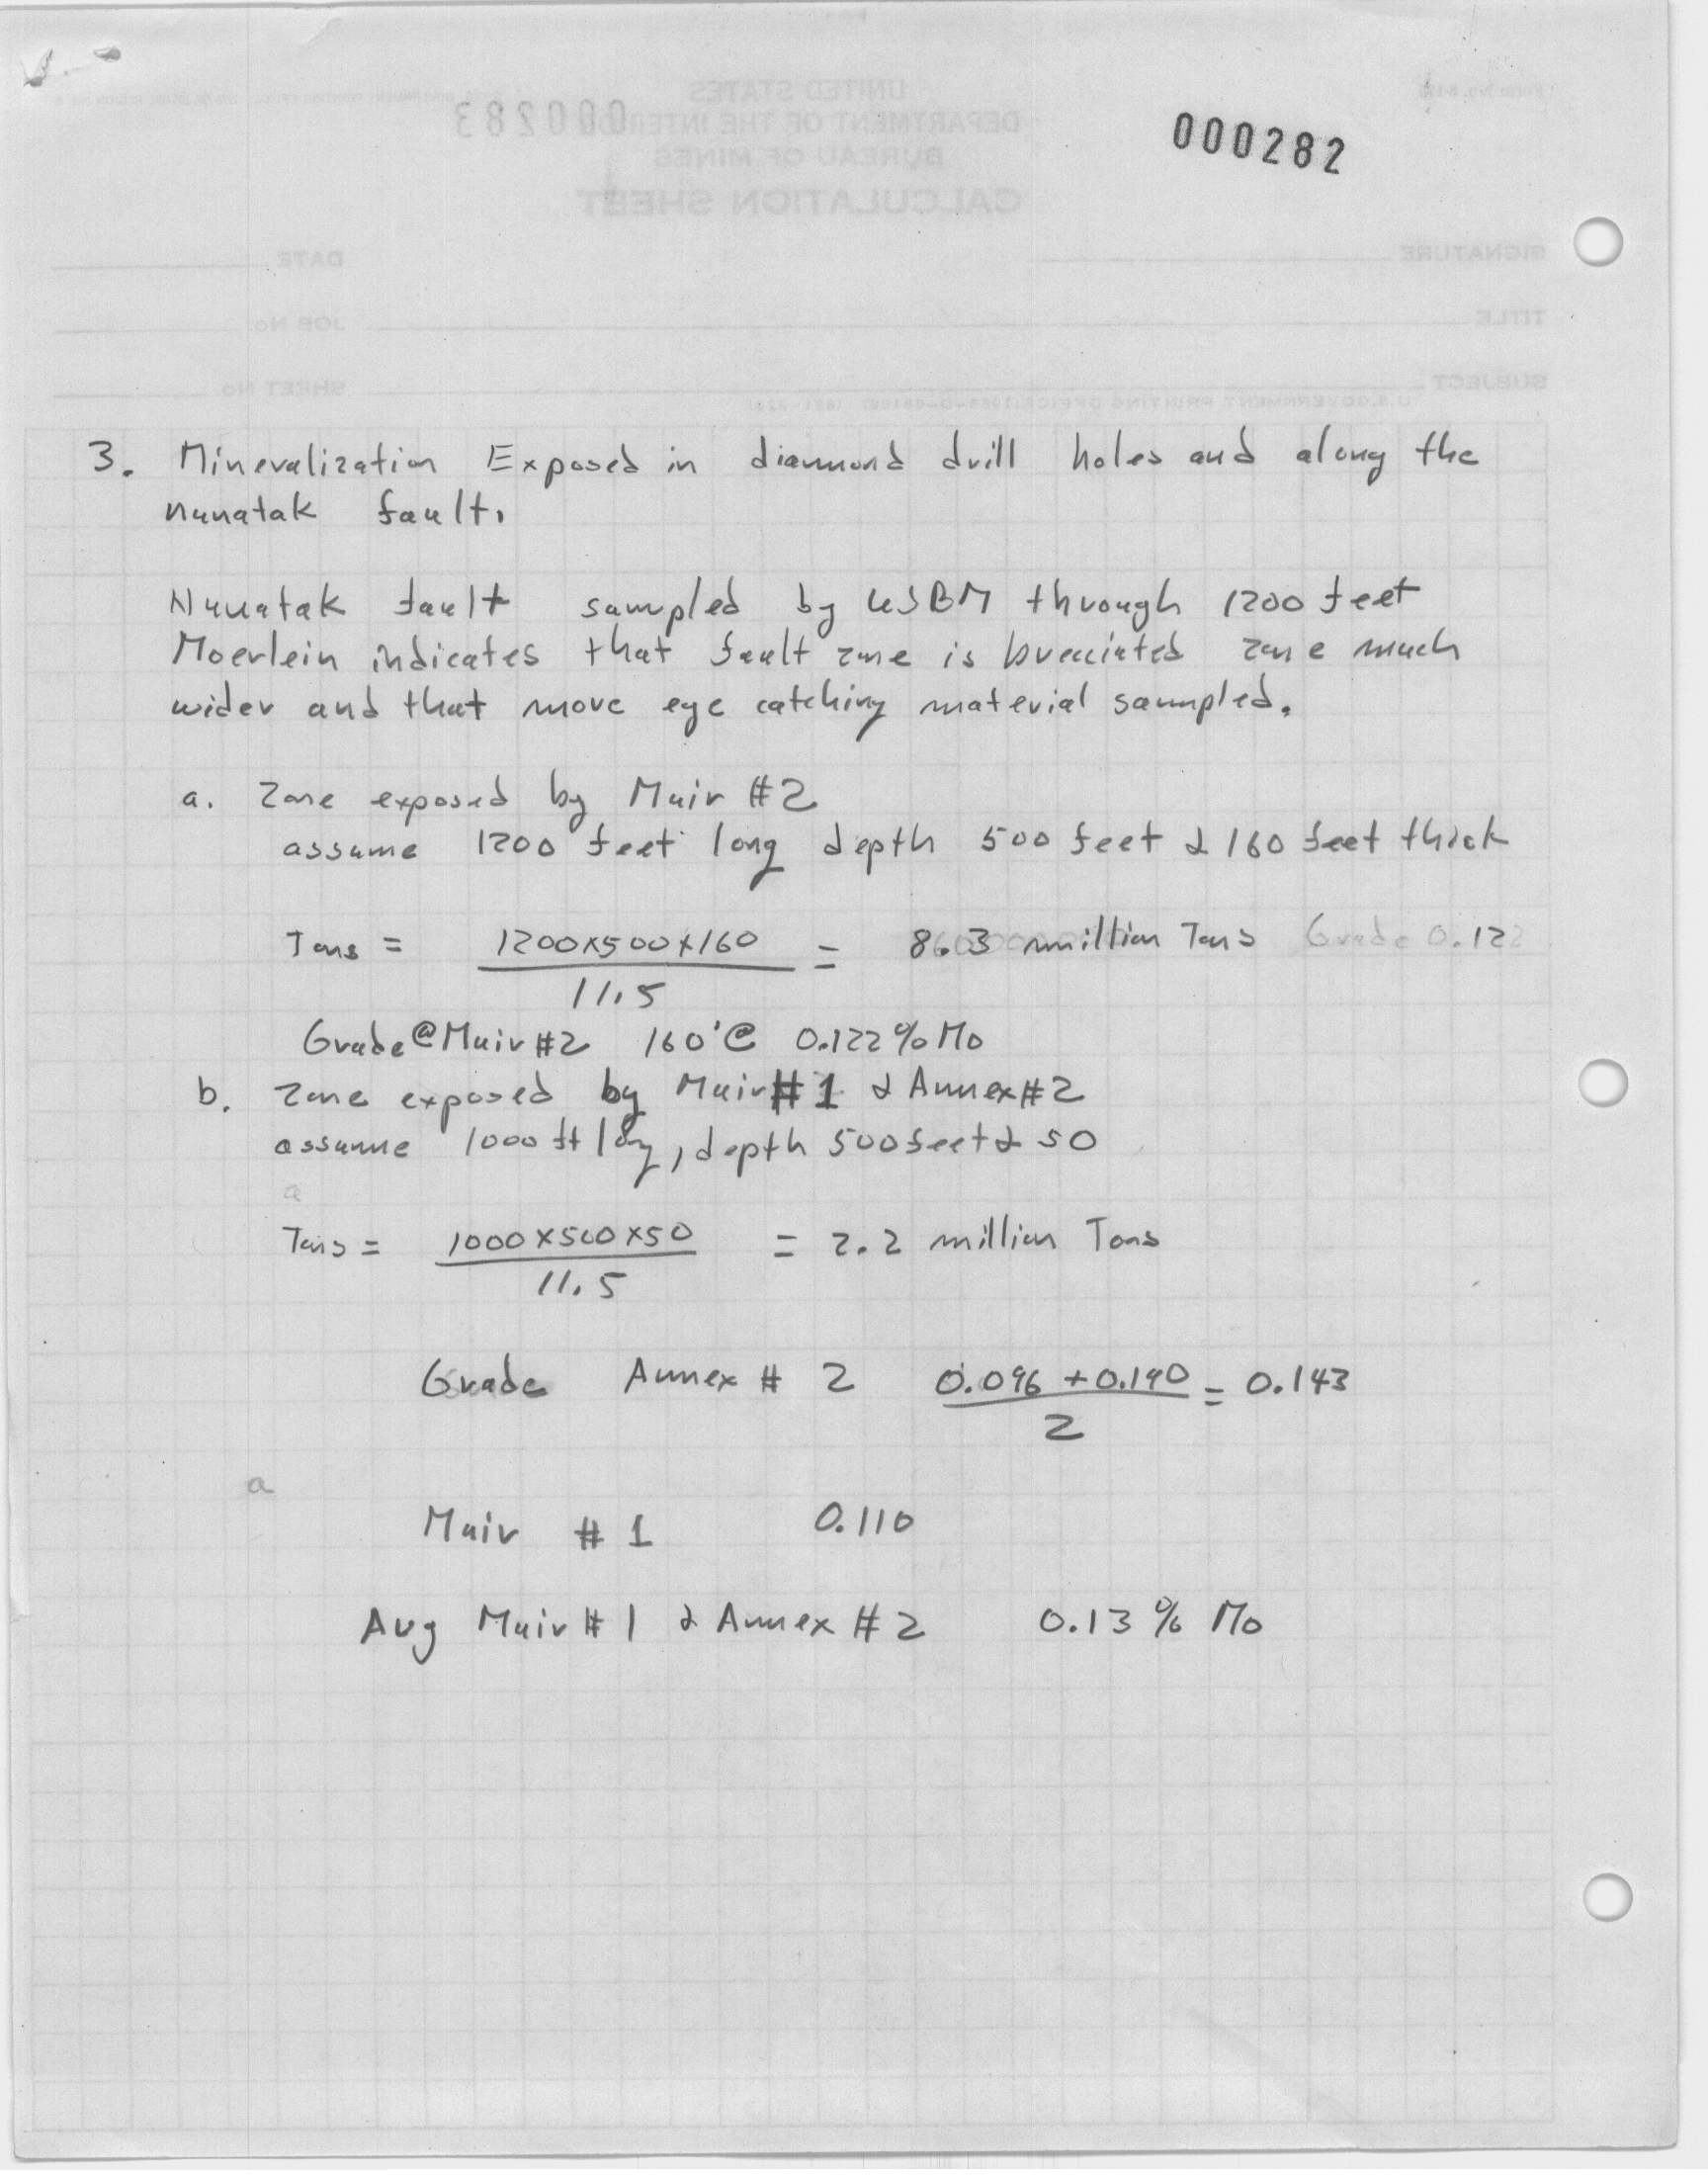 000282
3. Mineralization Exposed in diamond drill holes and along the
nunatak fault.
Nunatak fault sampled by USBM through 1200 feet
Moerlein indicates that fault zone is brecciated zone much
wider and that more eye catching material sampled.
a. Zone exposed by Muir #2
assume 1200 feet long depth 500 feet & 160 feet thick
Tons = 1200x500x160 = 8.3 million Tons Grade 0.122
11.5
Grade @ Muir #2 160' @ 0.122 % Mo
b. Zone exposed by Muir #1 & Annex #2
assume 1000 ft long, depth 500 feet & 50
a
Tons = 1000 x 500 x 50 = 2.2 million Tons
11.5
Grade Annex # 2 0.096 + 0.190 = 0.143
2
a
Muir # 1 0.110
Avg Muir # 1 & Annex # 2 0.13 % Mo